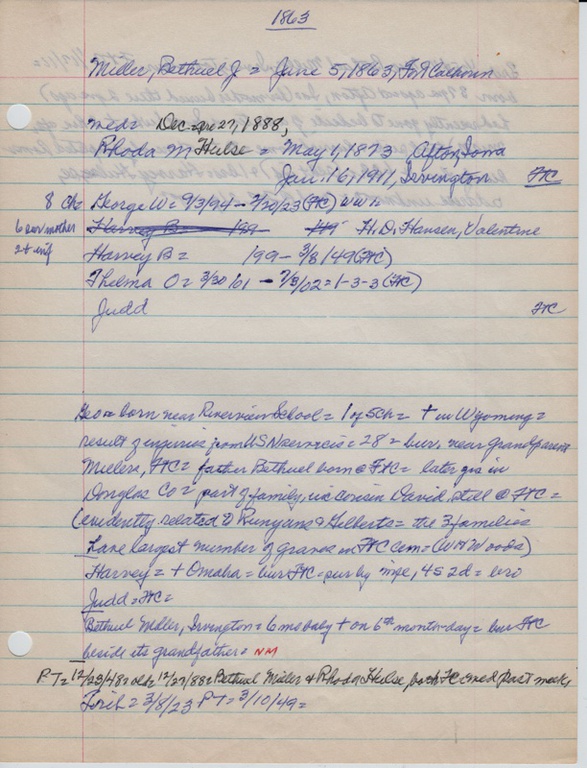 1863
Miller, Bethuel J = June 5, 1863, Ft Calhoun
med= Dec 27, 1888,
Rhoda M Hulse = May 1, 1873 Afton, Iowa
Jan 16, 1911, Irvington FtC
8 ch George W = 9/3/94 - 7/20/23 (FtC) WW I
6 sur mother H. D. Hansen, Valentine
2 + inf Harvey B = 199 - 3/8/49 (FtC)
Thelma O = 3/30/01 - 7/3/02 = 1-3-3 (FtC)
Judd FtC
Geo = born near Riverview School = 1 of 5 Ch = + in Wyoming =
result of injuries from US N services = 28 = bur. near grandparent
Millers, FtC = father Bethuel born @ FtC = later gra in
Douglas Co = part of family, cousin David still @ FtC =
(evidently related to Runyans & Gilberts = the 3 families
have largest number of graves in FtC cem = (W H Woods)
Harvey = + Omaha = bur FtC = sur by wife, 4s 2d = bro
Judd = FtC =
Bethuel Miller, Irvington = 6 mo baby + on 6th month-day = bur FtC
beside its grandfather = NM
PT = 12/23/48 = 12/27/88 = Bethuel Miller & Rhoda Hulse, both FtC med past week
Trib = 3/8/23 PT = 3/10/49 =